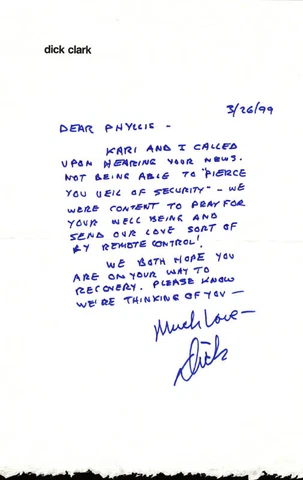 dick clark
3/26/99
DEAR PHYLLIS -
KARI AND I CALLED
UPON HEARING YOUR NEWS.
NOT BEING ABLE TO "PIERCE
YOU VEIL OF SECURITY" - WE
WERE CONTENT TO PRAY FOR
YOUR WELL BEING AND
SEND OUR LOVE SORT OF
BY REMOTE CONTROL!
WE BOTH HOPE YOU
ARE ON YOUR WAY TO
RECOVERY. PLEASE KNOW
WE'RE THINKING OF YOU -
Much Love -
Dick